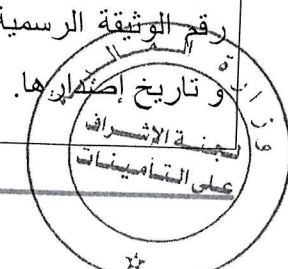 رقم الوثيقة الرسمية
و تاريخ إصدارها.
وزارة المالية
لجنة الإشراف
على التأمينات